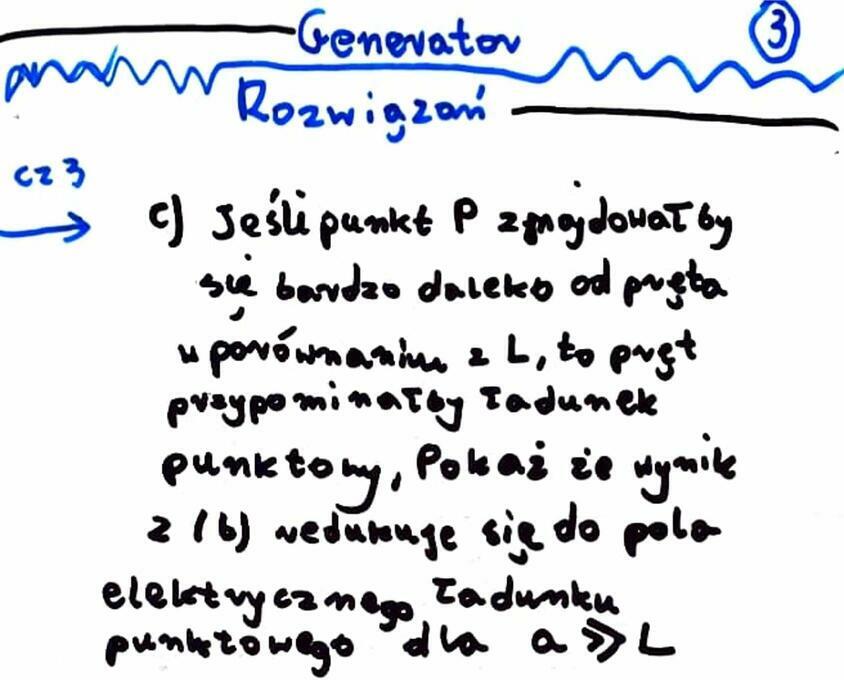 Generator
3
Rozwiązań
cz 3
c) Jeśli punkt P znajdowałby
się bardzo daleko od pręta
w porównaniu z L, to pręt
przypominałby ładunek
punktowy, Pokaż że wynik
z (b) redukuje się do pola
elektrycznego ładunku
punktowego dla a ≫ L